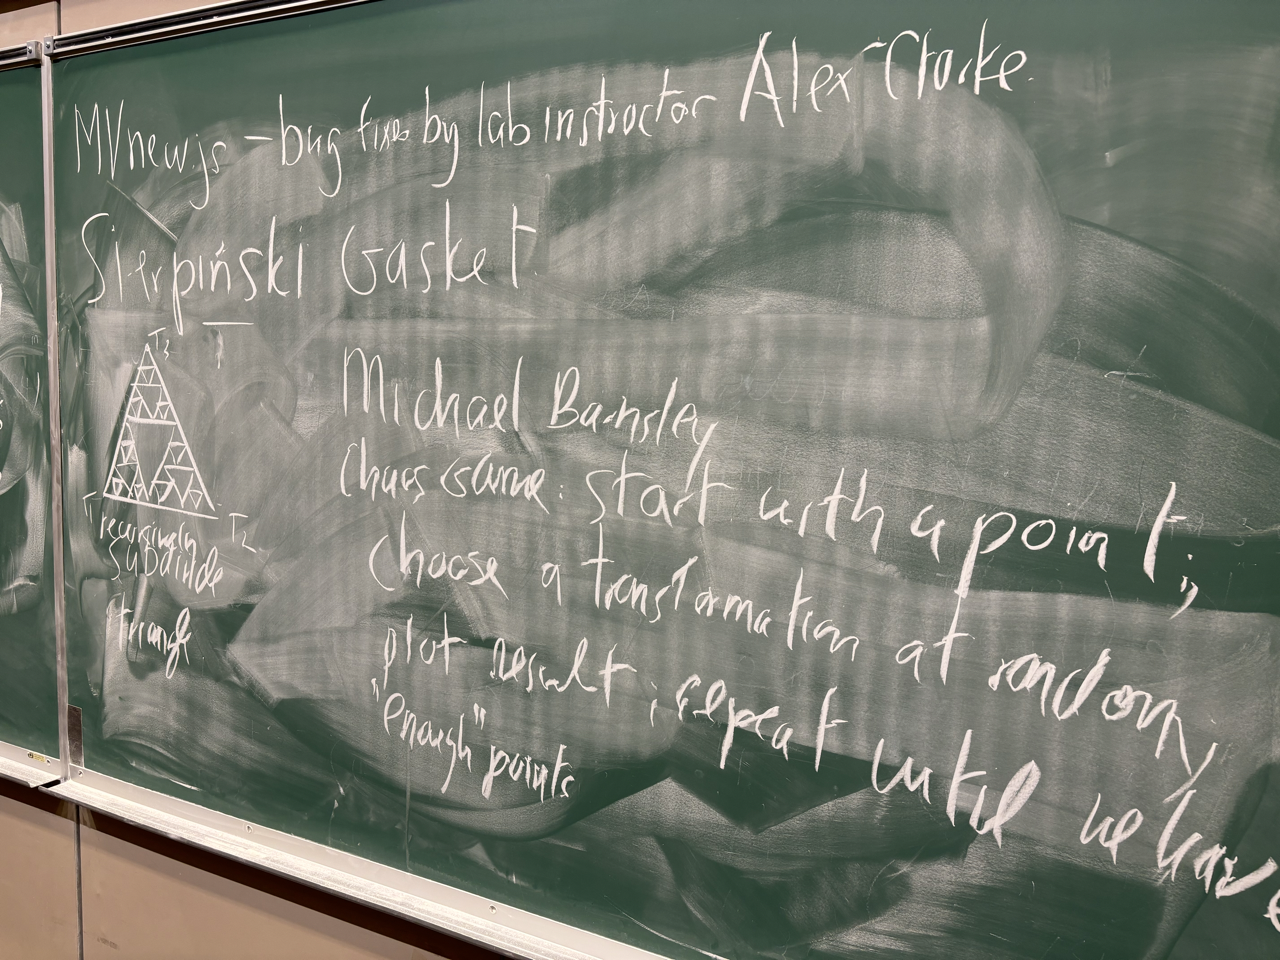 MVnew.js – bug fixes by lab instructor Alex Clarke.
Sierpiński Gasket.
T3
T1
T2
recursively
subdivide
triangle
Michael Barnsley
Chaos Game: start with a point;
choose a transformation at random,
plot result; repeat until we have
"enough" points